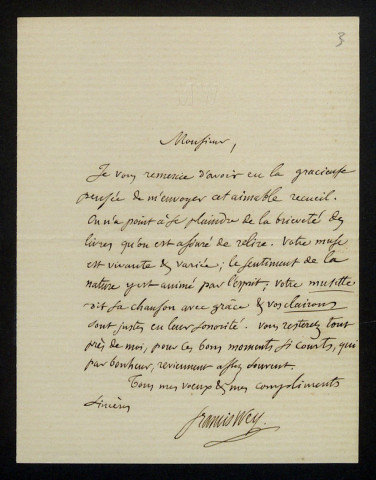 3
Monsieur,
Je vous remercie d'avoir eu la gracieuse
pensée de m'envoyer cet aimable recueil.
On n'a point à se plaindre de la brieveté des
livres qu'on est assuré de relire. Votre muse
est vivante & variée; le sentiment de la
nature y est animé par l'esprit, votre musette
dit sa chanson avec grâce & vos clairons
sont justes en leur sonorité. Vous resterez tout
près de moi, pour ces bons moments si courts, qui
par bonheur, reviennent assez souvent.
Tous mes vœux & mes compliments
sincères
Francis Wey.